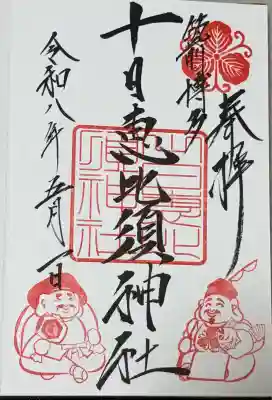 奉拝
筑前博多
十日恵比須神社
令和八年五月一日
十日恵比須神社